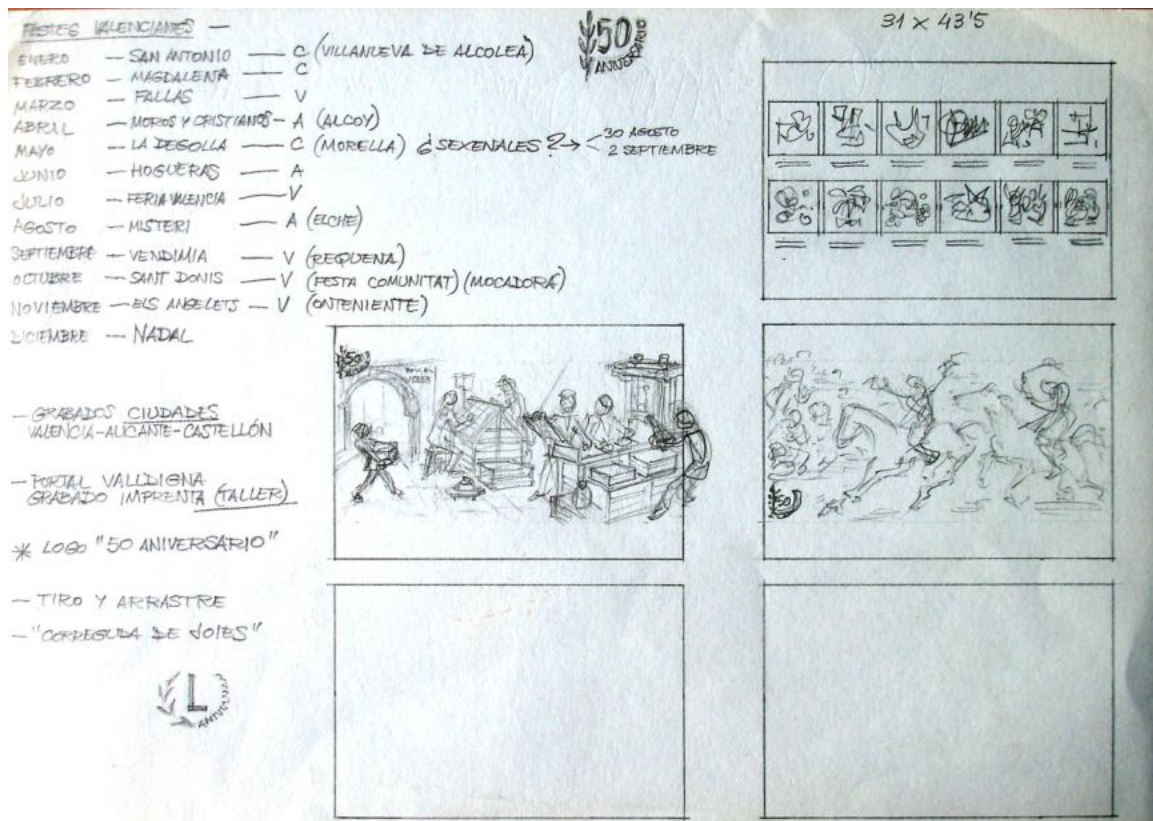 FESTES VALENCIANES —
ENERO — SAN ANTONIO — C (VILLANUEVA DE ALCOLEA)
FEBRERO — MAGDALENA — C
MARZO — FALLAS — V
ABRIL — MOROS Y CRISTIANOS — A (ALCOY)
MAYO — LA DEGOLLA — C (MORELLA) ¿SEXENALES? → < 30 AGOSTO
2 SEPTIEMBRE
JUNIO — HOGUERAS — A
JULIO — FERIA VALENCIA — V
AGOSTO — MISTERI — A (ELCHE)
SEPTIEMBRE — VENDIMIA — V (REQUENA)
OCTUBRE — SANT DONIS — V (FESTA COMUNITAT) (MOCADORÁ)
NOVIEMBRE — ELS ANGELETS — V (ONTENIENTE)
DICIEMBRE — NADAL
50 ANIVERSARIO
31 X 43'5
— GRABADOS CIUDADES
VALENCIA-ALICANTE-CASTELLÓN
— PORTAL VALLDIGNA
GRABADO IMPRENTA (TALLER)
* LOGO "50 ANIVERSARIO"
— TIRO Y ARRASTRE
— "CORREGUDA DE JOIES"
L
50
50